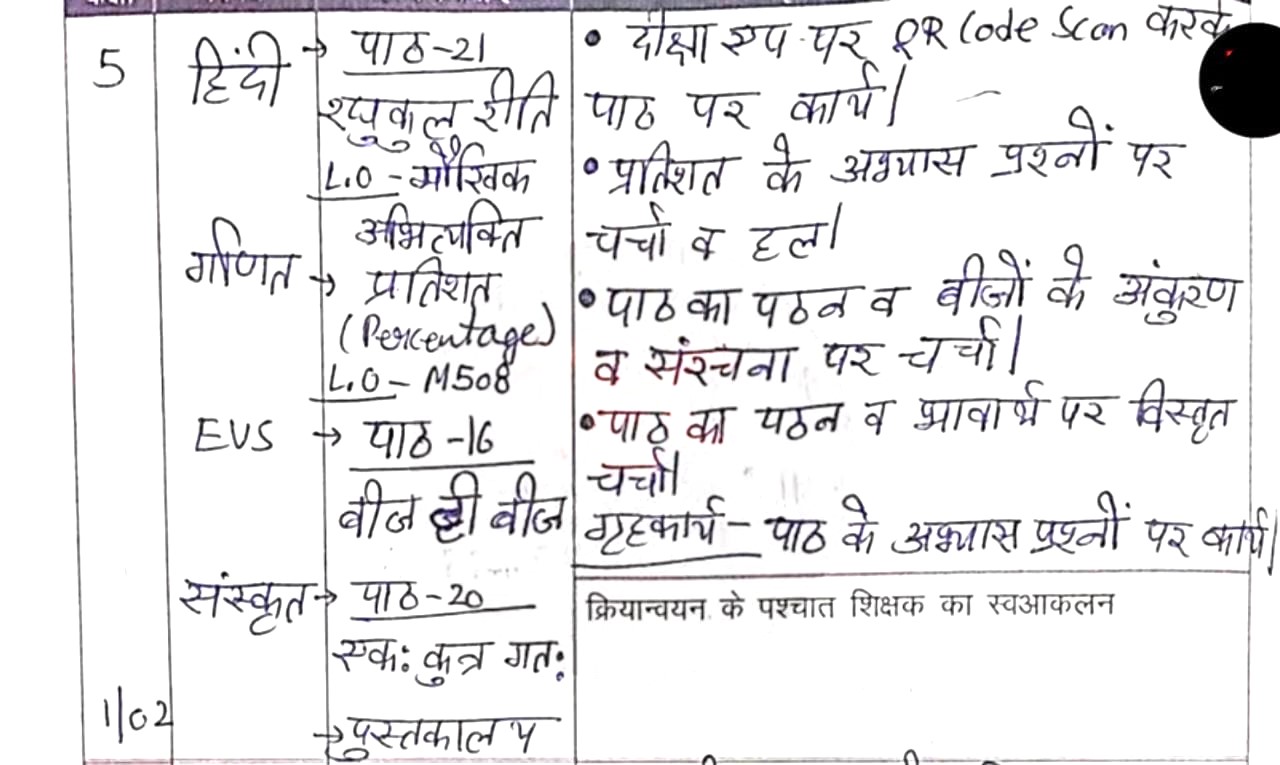 5
हिंदी → पाठ-21
रघुकुल रीति
L.O - मौखिक
अभिव्यक्ति
गणित → प्रतिशत
(Percentage)
L.O - M508
EVS → पाठ -16
बीज ही बीज
संस्कृत → पाठ-20
एकः कुत्र गतः
1/02
→ पुस्तकालय
• दीक्षा एप पर QR Code Scan करके
पाठ पर कार्य।
• प्रतिशत के अभ्यास प्रश्नों पर
चर्चा व हल।
• पाठ का पठन व बीजों के अंकुरण
व संरचना पर चर्चा।
• पाठ का पठन व भावार्थ पर विस्तृत
चर्चा।
गृहकार्य - पाठ के अभ्यास प्रश्नों पर कार्य।
क्रियान्वयन के पश्चात शिक्षक का स्वआकलन